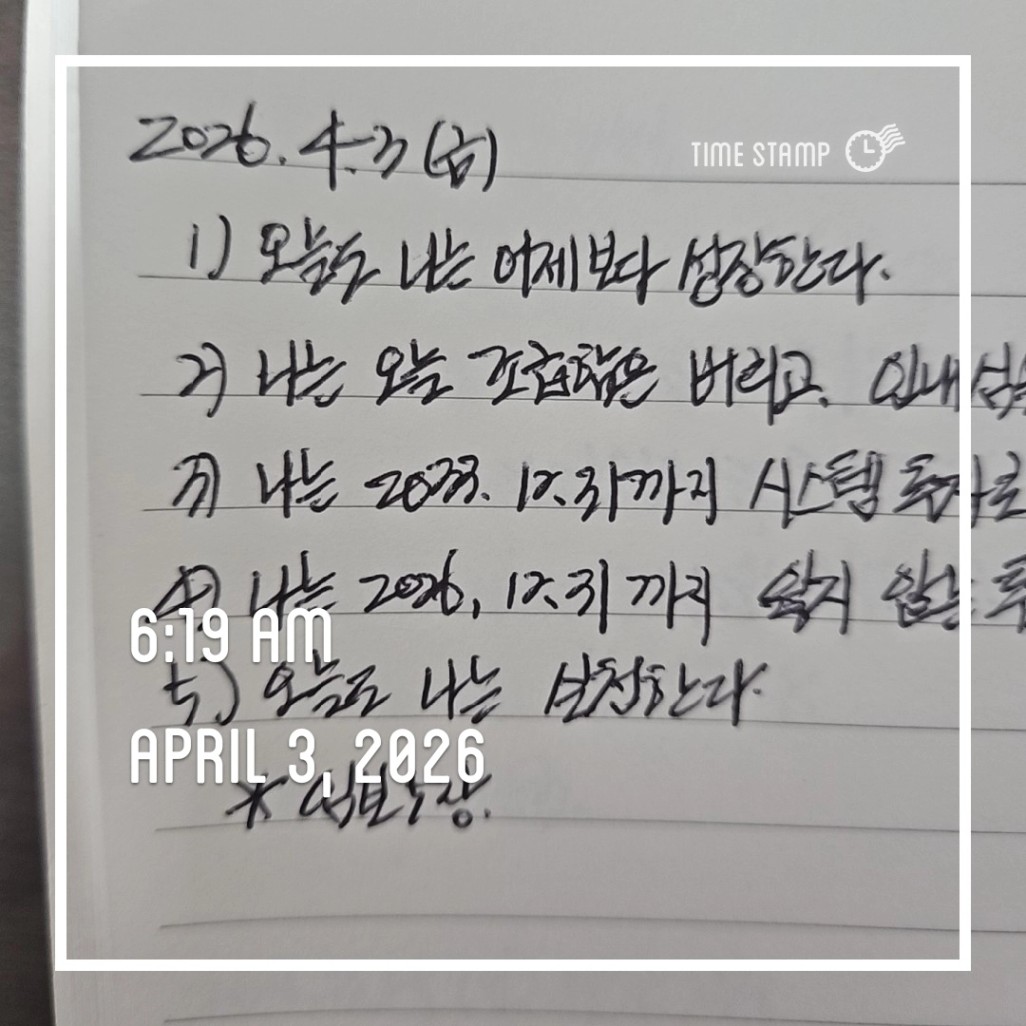 2026. 4.3 (금)
TIME STAMP
1) 오늘도 나는 어제보다 성장한다.
2) 나는 오늘 조급함은 버리고, 인내심을
3) 나는 2033. 12.31까지 시스템 투자로
4) 나는 2026. 12.31까지 잃지 않는 투
6:19 AM
5) 오늘도 나는 실천한다.
APRIL 3, 2026
*